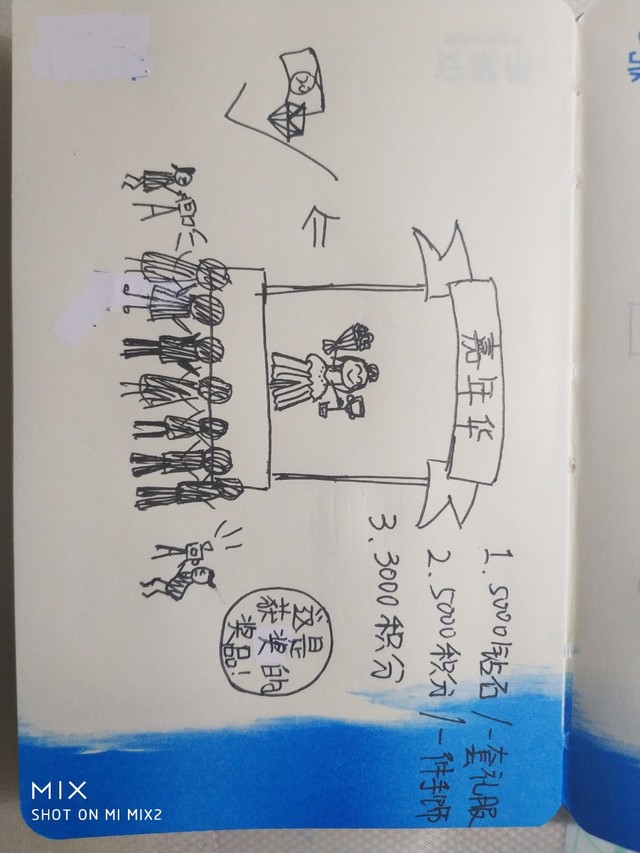 嘉年华
1.5000钻石/一套礼服
2.5000积分/一件手饰
3.3000积分
这是
获奖的
奖品!
MIX
SHOT ON MI MIX2